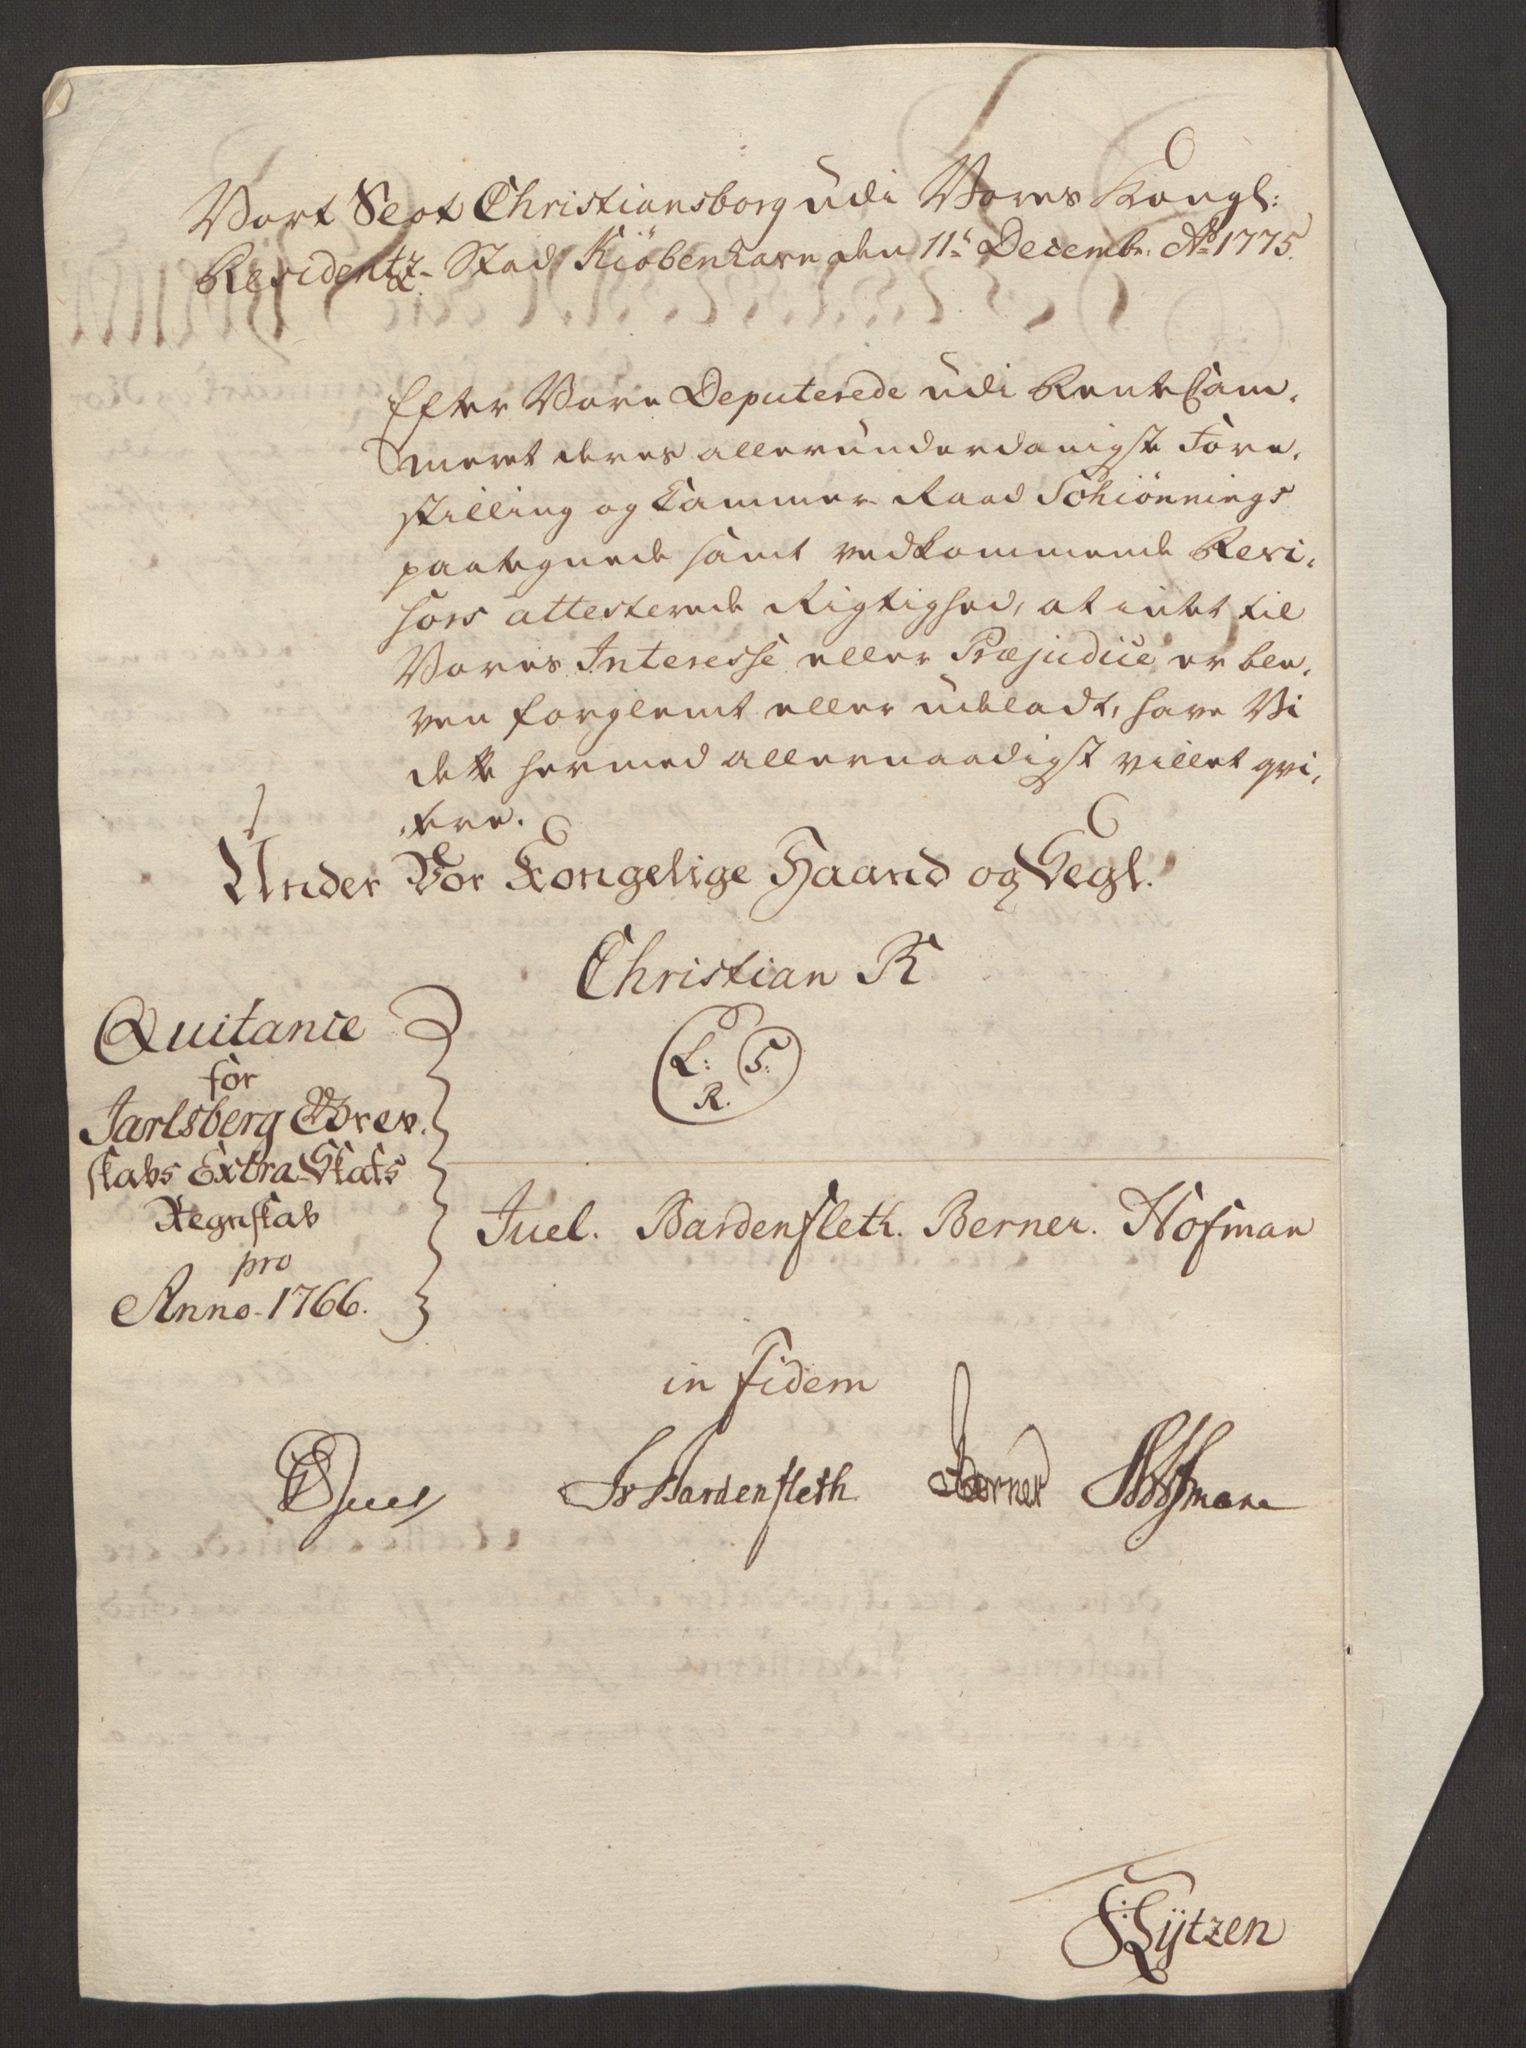 Vort Slot Christiansborg udi Vores Kongl:
Residentz-Stad Kiöbenhavn den 11te Decembr: Ao 1775.
Efter Vore Deputerede udi RenteCam-
meret deres allerunderdanigste Fore-
stilling og Cammer-Raad Schiönnings
paategnede samt vedkommende Revi-
sors attesterede Rigtighed, at intet til
Vores Interesse eller Præjudice er ble-
ven forglemt eller udeladt, have Vi
dette hermed allernaadigst villet qvi-
tere.
Under Vor Kongelige Haand og Segl.
Christian R
L: S:
R.
Quitance
for
Jarlsberg Grev-
skabs Extra-Skats
Regnskab
pro
Anno-1766.
Juel. Bardenfleth. Berner. Hofman
in fidem
Juel JvBardenfleth Berner Hofman
F: Lÿtzen